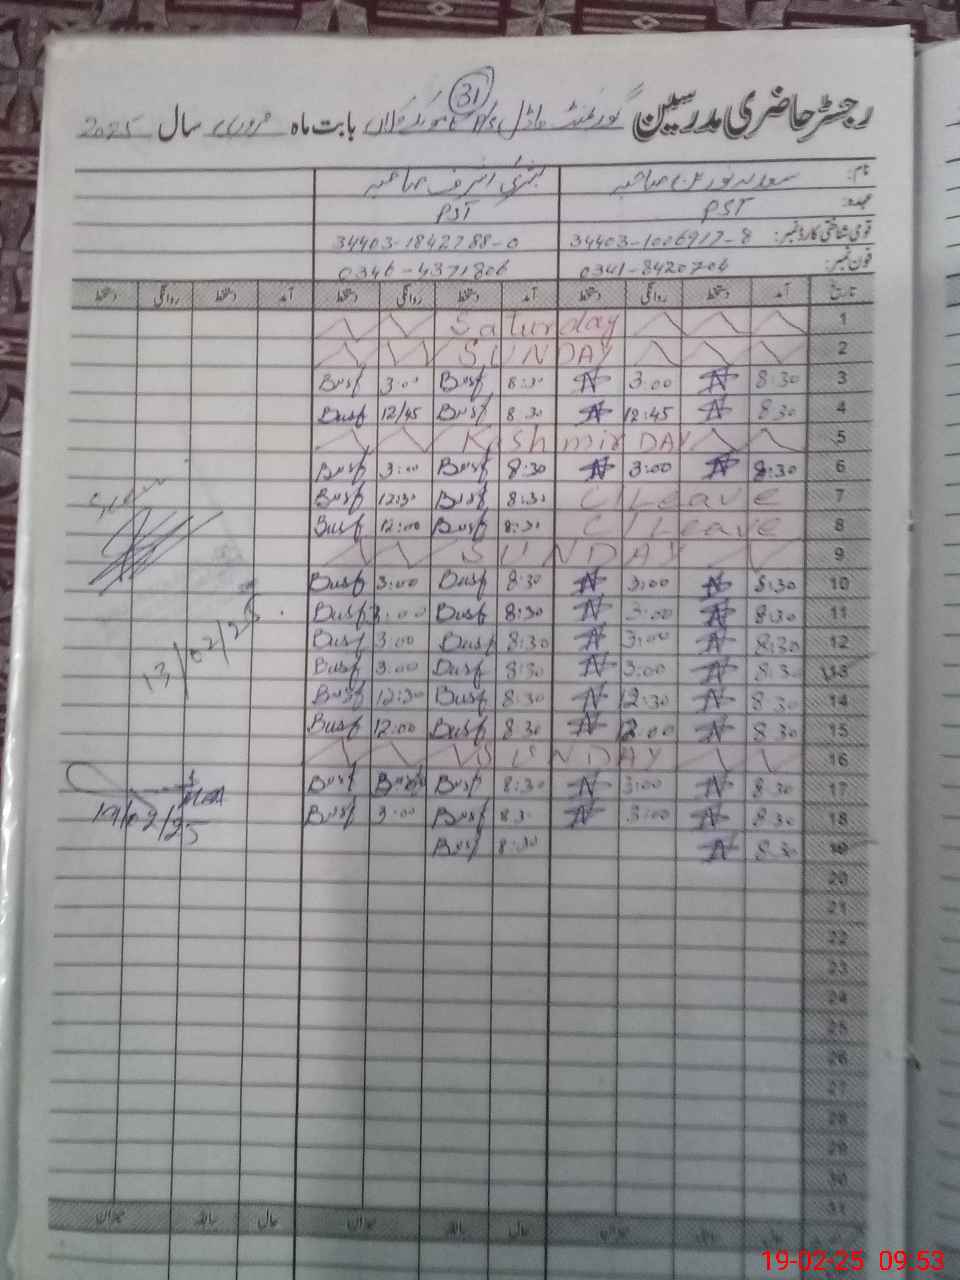 31
رجسٹر حاضری مدرسین گورنمنٹ ماڈل بابت ماہ فروری سال 2025
نام: صاحبہ بشریٰ اشرف صاحبہ
عہدہ: PST PST
قومی شناختی کارڈ نمبر: 34403-1006917-8 34403-1842788-0
فون نمبر: 0341-8420704 0346-4371806
تاریخ آمد دستخط روانگی دستخط آمد دستخط روانگی دستخط آمد دستخط روانگی دستخط
1 Saturday
2 SUNDAY
3 8:30 N 3:00 N 8:30 Busf 3:00 Busf
4 8:30 N 12:45 N 8:30 Busf 12/45 Busf
5 Kashmir DAY
6 8:30 N 3:00 N 8:30 Busf 3:00 Busf
7 C/Leave 8:30 Busf 12:30 Busf
8 C/Leave 8:30 Busf 12:00 Busf
9 SUNDAY
10 8:30 N 3:00 N 8:30 Busf 3:00 Busf
11 8:30 N 3:00 N 8:30 Busf 3:00 Busf
12 8:30 N 3:00 N 8:30 Busf 3:00 Busf
13 8:30 N 3:00 N 8:30 Busf 3:00 Busf
13/02/25
14 8:30 N 12:30 N 8:30 Busf 12:30 Busf
15 8:30 N 12:00 N 8:30 Busf 12:00 Busf
16 SUNDAY
17 8:30 N 3:00 N 8:30 Busf Busf
18 8:30 N 3:00 N 8:30 Busf 3:00 Busf
19/02/25
19 8:30 N 8:30 Busf
20
21
22
23
24
25
26
27
28
29
30
31
حال سابقہ میزان حال سابقہ میزان
19-02-25 09:53